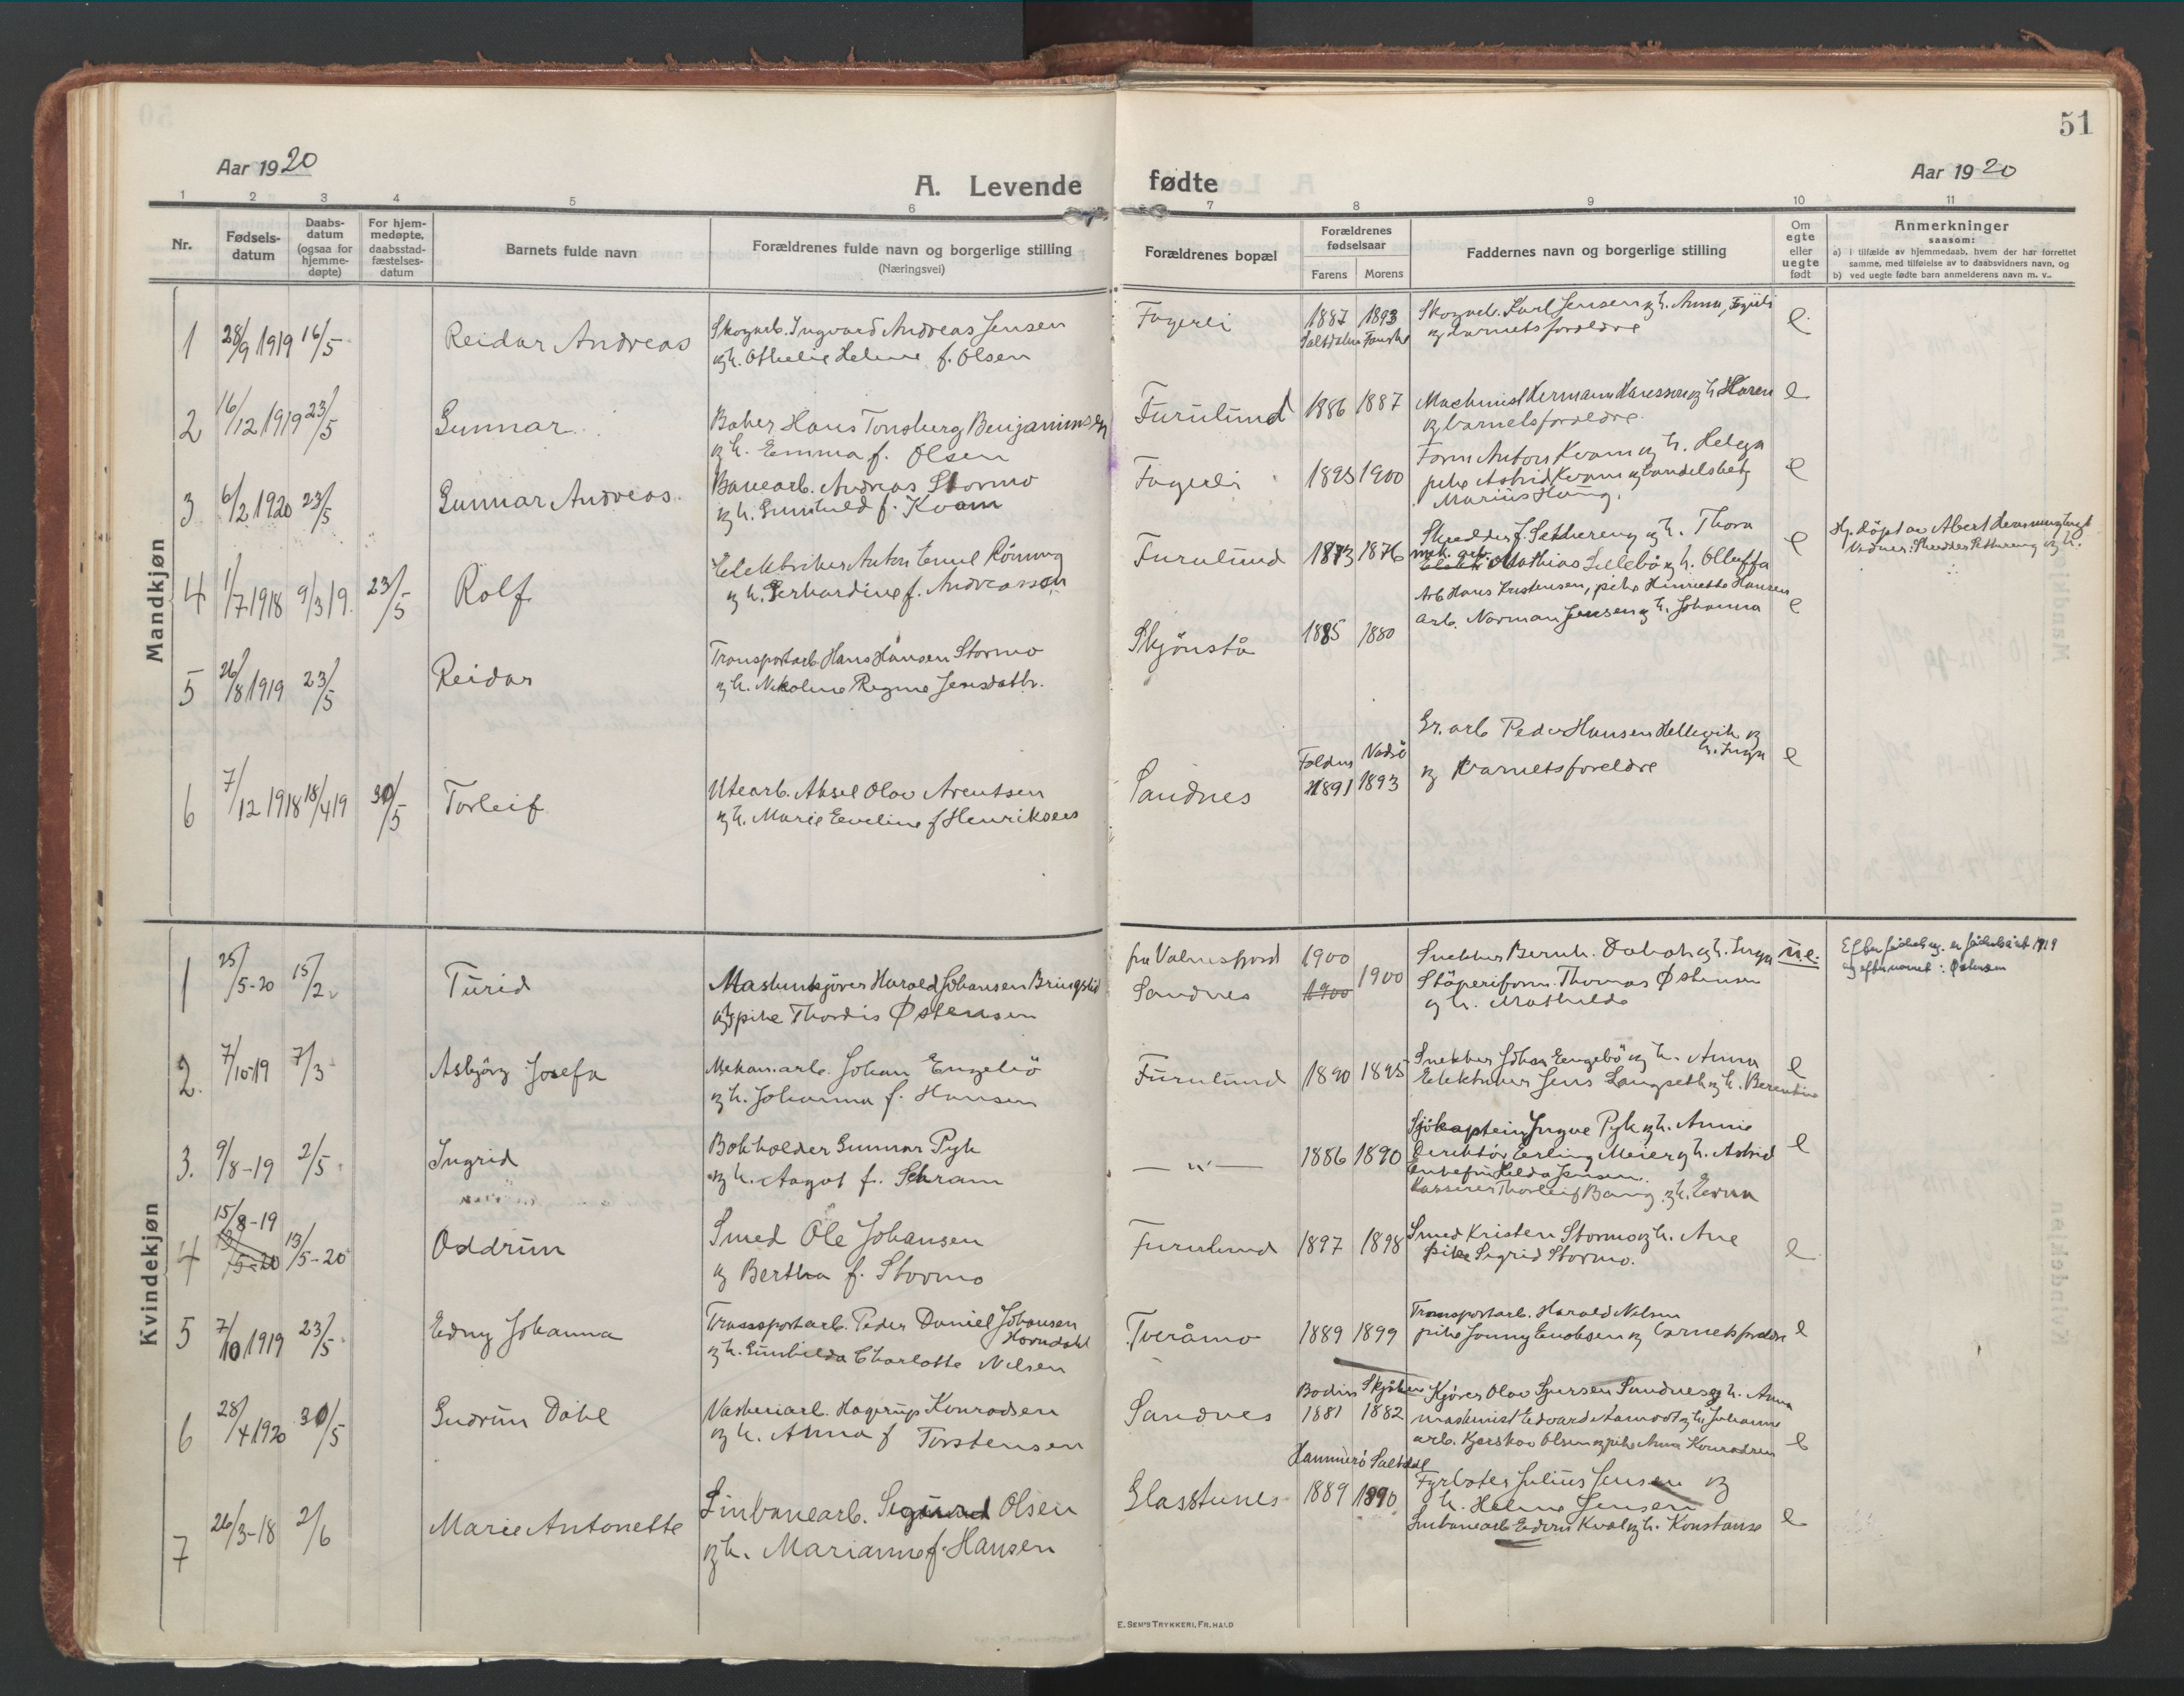 51
Aar 1920
A. Levende fødte
Aar 1920
1 2 3 4 5 6 7 8 9 10 11
Nr.
Fødsels-
datum
Daabs-
datum
(ogsaa for
hjemme-
døpte)
For hjem-
medøpte,
daabsstad-
fæstelses-
datum
Barnets fulde navn
Forældrenes fulde navn og borgerlige stilling
(Næringsvei)
Forældrenes bopæl
Forældrenes
fødselsaar
Farens Morens
Faddernes navn og borgerlige stilling
Om
egte
eller
uegte
født
Anmerkninger
saasom:
a) i tilfælde av hjemmedaab, hvem der har forrettet
samme, med tilføielse av to daabsvidners navn, og
b) ved uegte fødte barn anmelderens navn m. v..
Mandkjøn
1 28/9 1919 16/5 Reidar Andreas
Skogarb. Ingvard Andreas Jensen
og h. Othelie Helene f. Olsen
Fagerli 1887 1893
Saltdalen Fauske
Skogarb. Karl Jensen og h. Anna, Fagerli
og barnets foreldre
e
2 16/12 1919 23/5 Gunnar
Baker Hans Tonsberg Benjaminsen
og h. Emma f. Olsen
Furulund 1886 1887
Machinist Hermann Hanssen og h. Karen
og barnets foreldre.
e
3 6/2 1920 23/5 Gunnar Andreas
Banearb. Andreas Stormo
og h. Gunhild f. Kvam
Fagerli 1895 1900
Form Anton Kvam og h. Helega
pike Astrid Kvam og handelsbetj
Marius Haug.
e
4 1/7 1918 9/3 19. 23/5 Rolf
Elektriker Anton Emil Rönning
og h. Gerhardine f. Andreassen
Furulund 1873 1876
Skredder J. Sethereng og h. Thora
mek. arb. Mathias Lillebö og h. Olluffa
e
Hj. döpt av Albert Henning
Vidner: Skredder Sethereng og h.
5 26/8 1919 23/5 Reidar
Transportarb. Hans Hansen Stormo
og h. Nikoline Regine Jensdatr.
Skjönstå 1885 1880
Arb Hans Kristensen, pike Hinriette Hansen
arb. Norman Jensen og h. Johanna
e
6 7/12 1918 18/4 19 30/5 Torleif
Utearb. Aksel Olav Arentsen
og h. Marie Eveline f Henriksen
Sandnes
Folden Vadsö
1891 1893
Gr. arb Peder Hansen Hellevik og
h. Inga
og barnets foreldre
e
Kvindekjøn
1 25/5-20 15/2. Turid
Maskinkjörer Harald Johansen Bringslid
og pike Thordis Østensen
fra Valnesfjord 1900
Sandnes 1900 1900
Snekker Bernh. Dabakk og h. Inga
Stöperiform. Thomas Østensen
og h. Mathilde
u.e.
og efternavnet: Østensen
2. 7/10-19 7/3 Asbjörg Josefa
Mekan. arb. Johan Engebö
og h. Johanna f. Hansen
Furulund 1890 1895
Snekker Johan Eengebö og h. Anna
Elektriker Jens Langseth og h. Berentine
e
3. 9/8-19 2/5 Ingrid
Bokholder Gunnar Pyk
og h. Aagot f. Schram
— " — 1886 1890
Sjökaptein Ingve Pyk og h. Annie
Direktör Erling Meier og h. Astrid
Enkefru Hilda Jensen.
Kasserer Thorleif Bang og h. Edna
e
4 15/8-19 13/5-20 13/5-20 Oddrun
Smed Ole Johansen
og Bertha f. Stormo
Furulund 1897 1898
Smed Kristen Stormo og h. Ane
pike Sigrid Stormo.
e
5 7/10 1919 23/5 Edny Johanna
Transportarb. Peder Daniel Johansen
Horndahl
og h. Gunhilda Charlotte Nilsen
Tveråmo 1889 1899
Transportarb. Harald Nilsen
pike Jonny Enoksen og barnets foreldre
e
6 28/4 1920 30/5 Gudrun Dahl
Vaskeriarb. Hagerup Konradsen
og h. Anna f Torstensen
Sandnes
Bodin Skjöken
1881 1882
Kjörer Olav Sjursen Sandnes og h. Anna
maskinist Edvard Aamodt og h. Johanne
arb. Kjerskov Olsen og pike Anna Konradsen
e
7 26/3-18 2/6 Marie Antonette
Linbanearb. Sigurd Olsen
og h. Marianne f. Hansen
Glasstunes
Hammerö Saltdal
1889 1890
Fyrböter Julius Jensen og
h. Helene Jensen
Linbanearb Edvin Kval og h. Konstanse
e
E. SEM'S TRYKKERI, FR.HALD